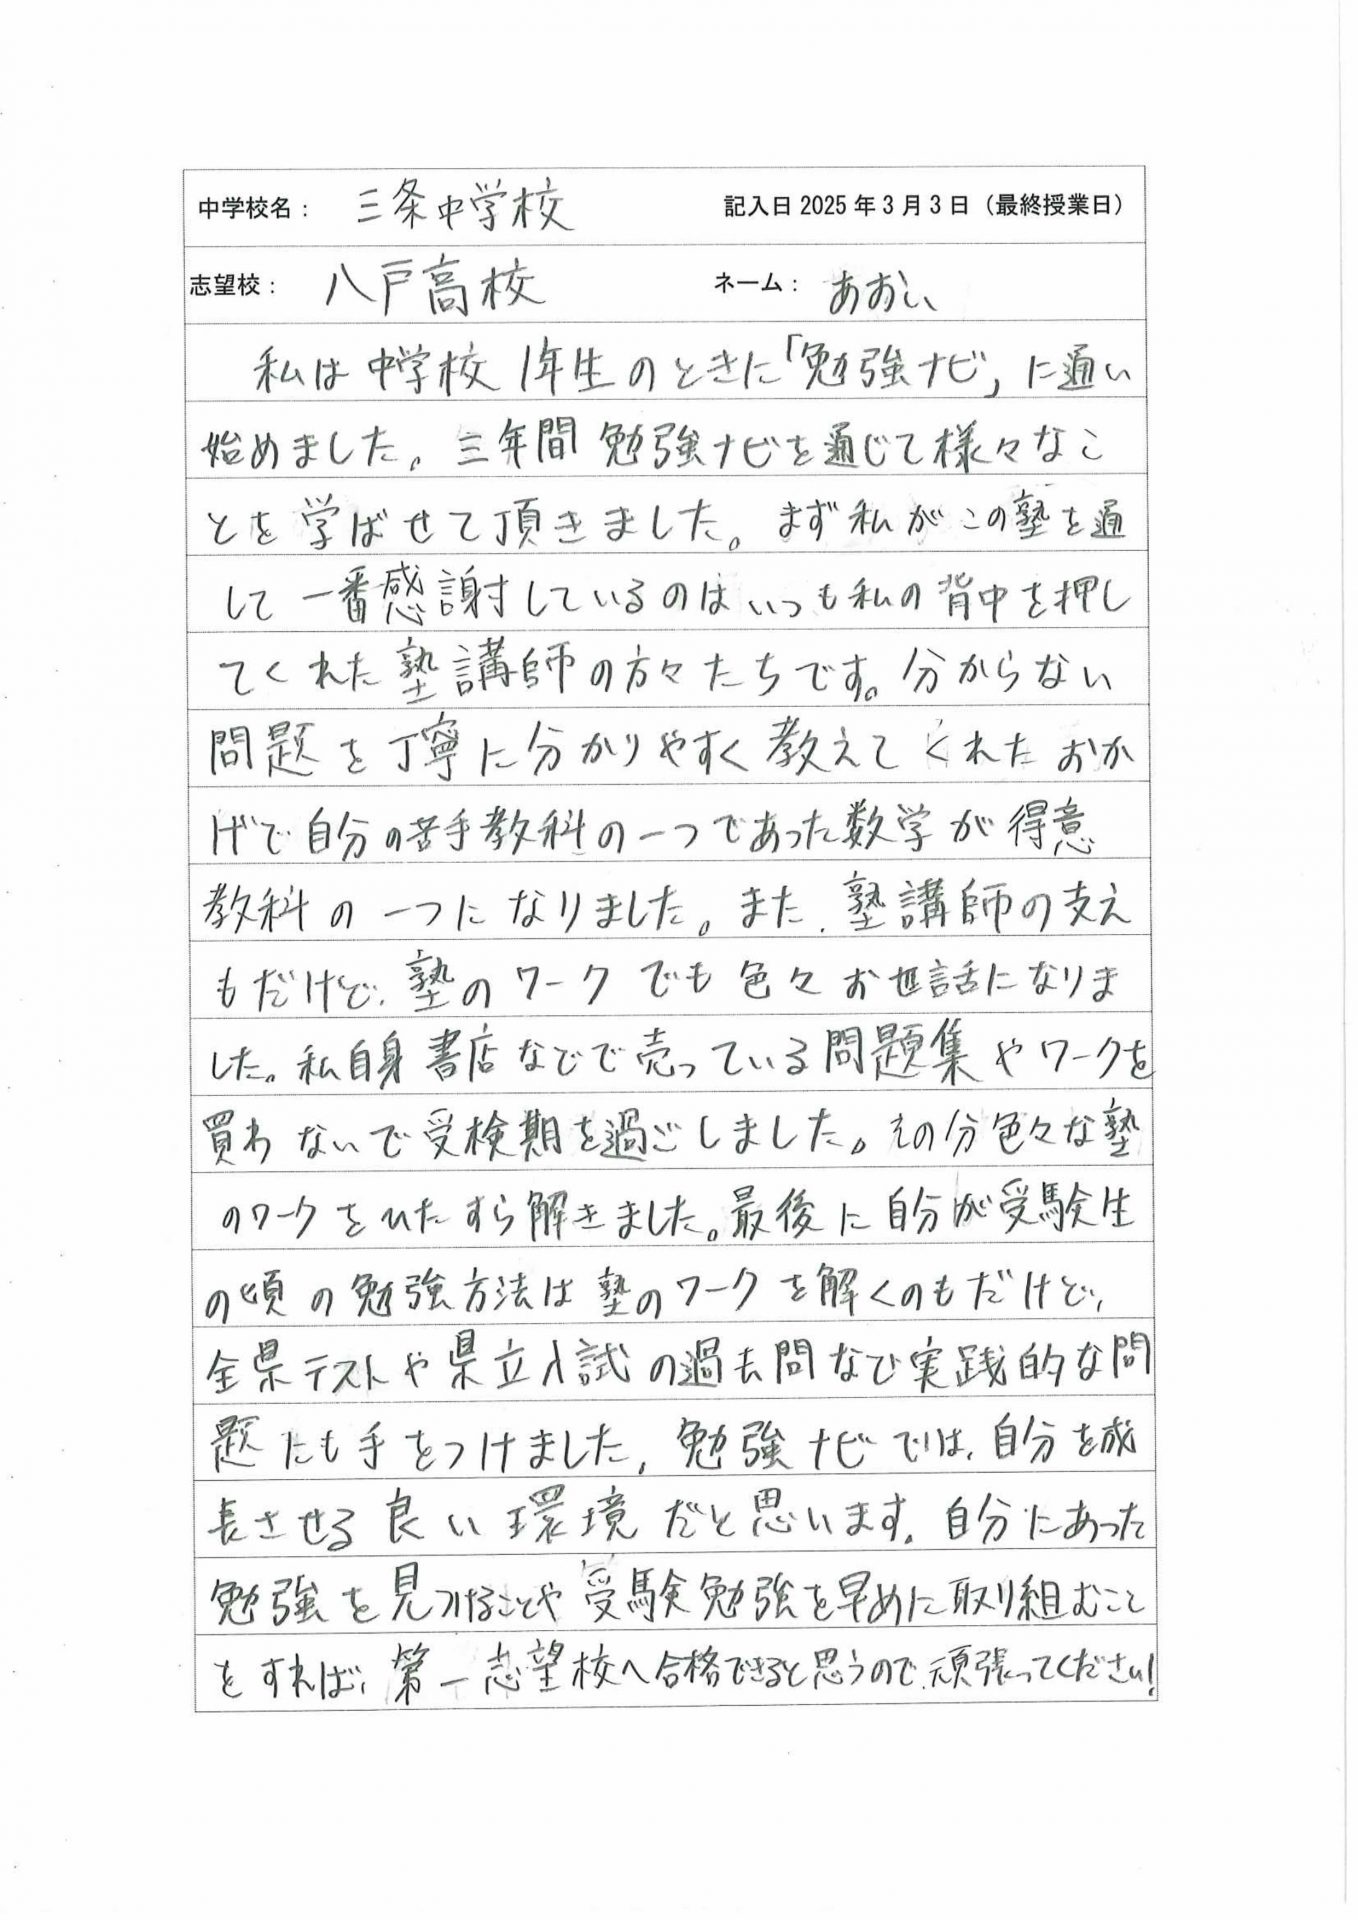 中学校名： 三条中学校 記入日 2025 年 3 月 3 日（最終授業日）
志望校： 八戸高校 ネーム： あおい
私は中学校1年生のときに「勉強ナビ」に通い
始めました。三年間勉強ナビを通じて様々なこ
とを学ばせて頂きました。まず私がこの塾を通
して一番感謝しているのはいつも私の背中を押し
てくれた塾講師の方々たちです。分からない
問題を丁寧に分かりやすく教えてくれたおか
げで自分の苦手教科の一つであった数学が得意
教科の一つになりました。また、塾講師の支え
もだけど、塾のワークでも色々お世話になりま
した。私自身書店などで売っている問題集やワークを
買わないで受検期を過ごしました。その分色々な塾
のワークをひたすら解きました。最後に自分が受験生
の頃の勉強方法は塾のワークを解くのもだけど、
全県テストや県立入試の過去問など実践的な問
題にも手をつけました。勉強ナビでは、自分を成
長させる良い環境だと思います。自分にあった
勉強を見つけることや受験勉強を早めに取り組むこと
をすれば、第一志望校へ合格できると思うので、頑張ってください!